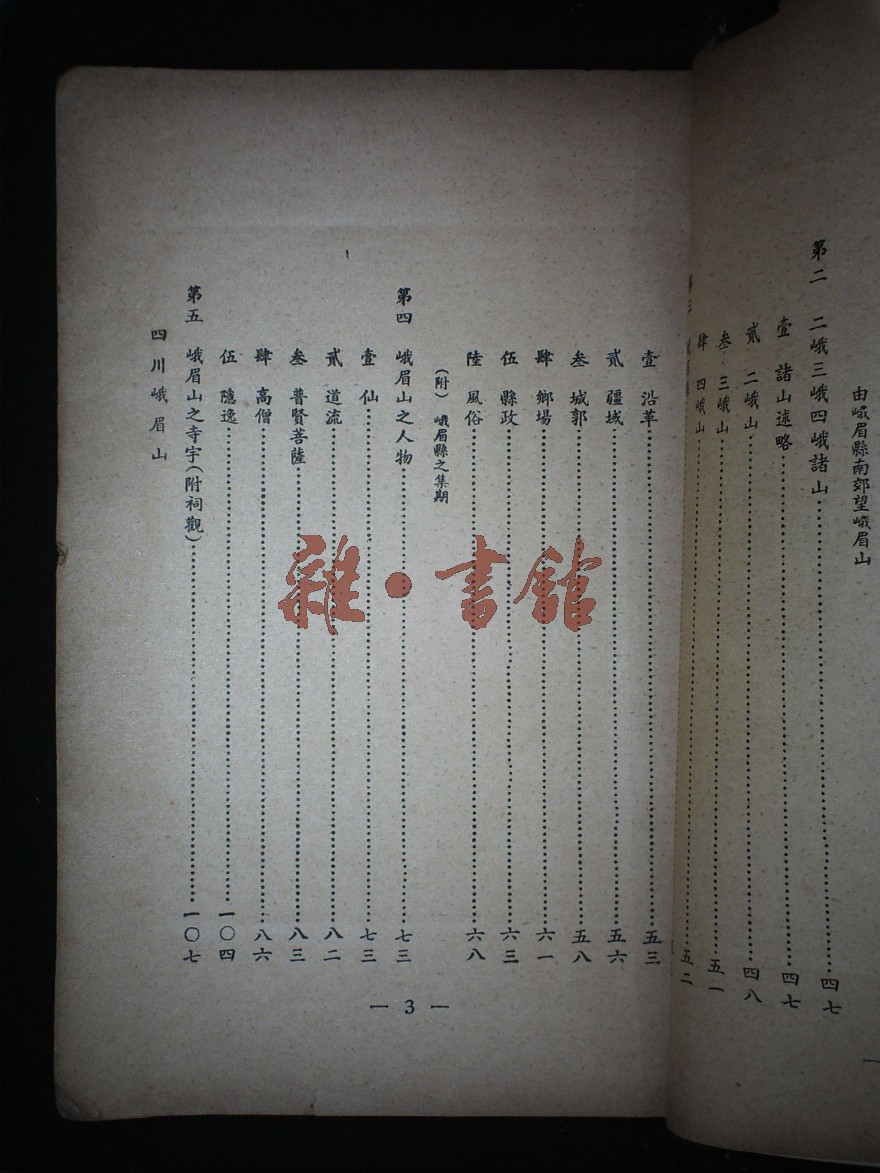 由峨眉縣南郊望峨眉山
第二 二峨三峨四峨諸山……四七
壹 諸山述略……四七
貳 二峨山……四八
叁 三峨山……五一
肆 四峨山……五二
第三
壹 沿革……五三
貳 疆域……五六
叁 城郭……五八
肆 鄉場……六一
伍 縣政……六三
陸 風俗……六八
(附) 峨眉縣之集期
第四 峨眉山之人物……七三
壹 仙……七三
貳 道流……八二
叁 普賢菩薩……八三
肆 高僧……八六
伍 隱逸……一〇四
第五 峨眉山之寺宇(附祠觀)……一〇七
四川峨眉山
— 3 —
雜·書館